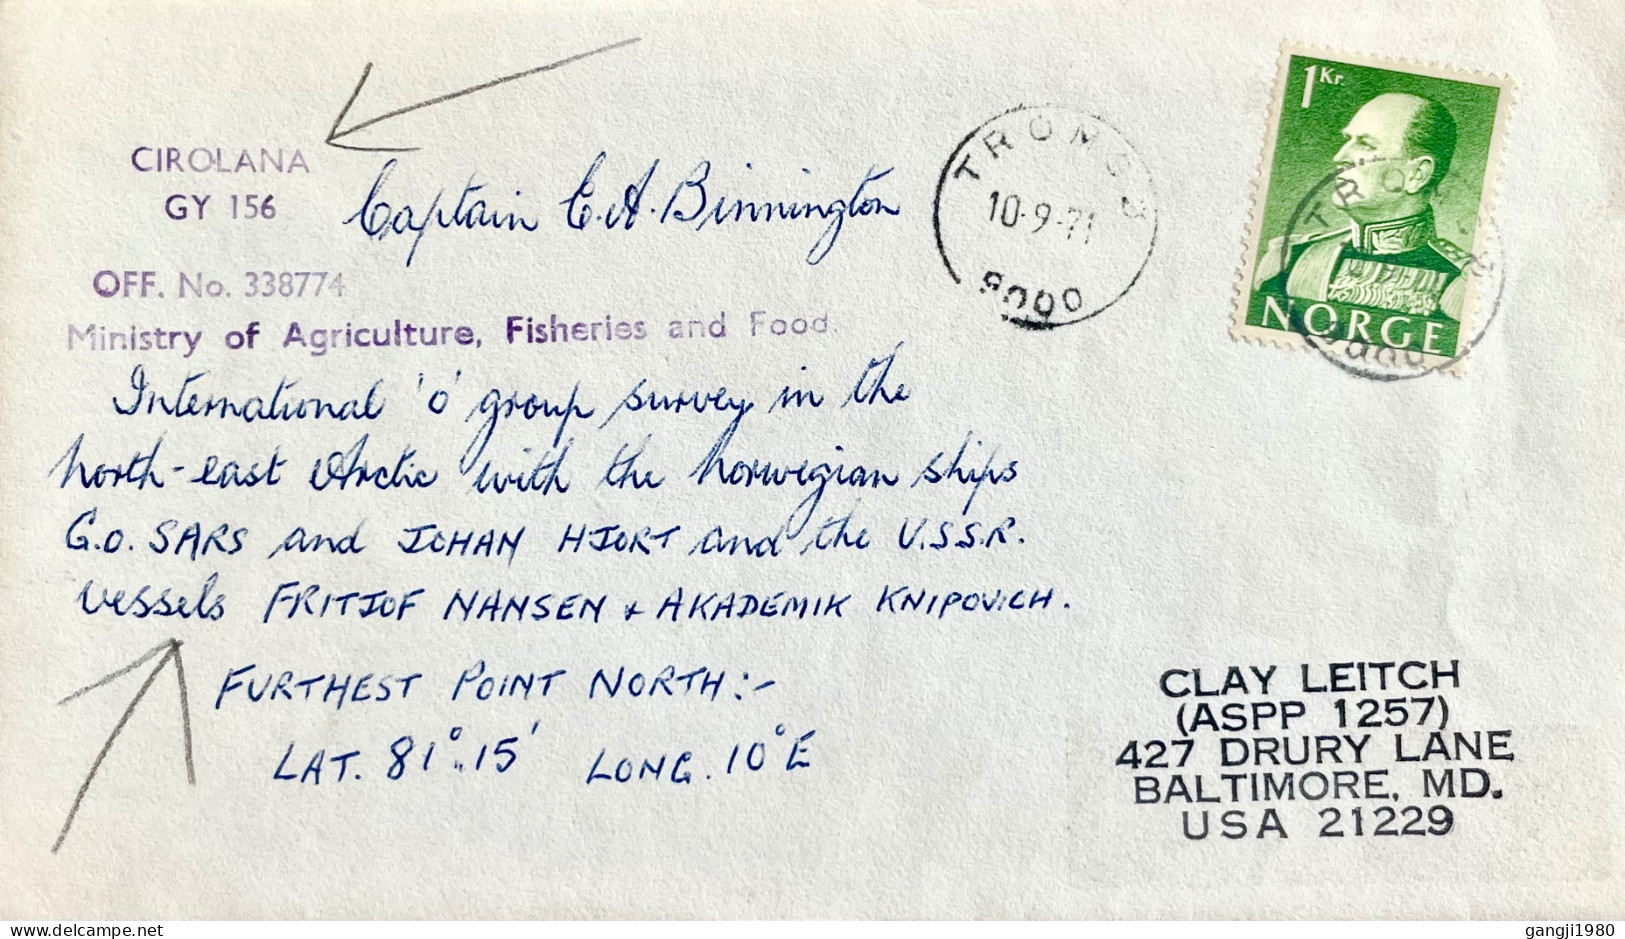 CIROLANA
GY 156
Captain E.A. Binnington
OFF. No. 338774
Ministry of Agriculture, Fisheries and Food.
International 'O' group survey in the
north-east Arctic with the Norwegian ships
G.O. SARS and JOHAN HJORT and the U.S.S.R.
vessels FRITJOF NANSEN & AKADEMIK KNIPOVICH.
FURTHEST POINT NORTH:-
LAT. 81°.15' LONG. 10°E
TROMSØ
10-9-71
9000
1 Kr.
NORGE
TROMSØ
9000
CLAY LEITCH
(ASPP 1257)
427 DRURY LANE
BALTIMORE, MD.
USA 21229
gangji1980